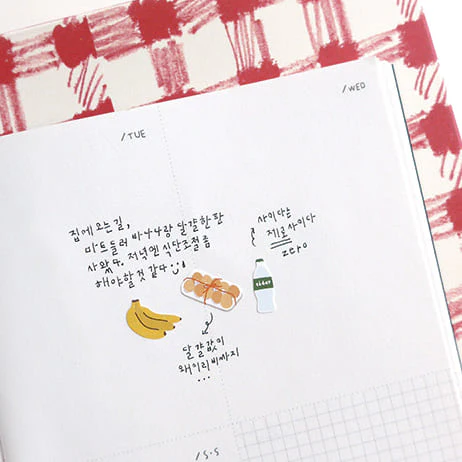 /TUE
/WED
집에 오는 길,
마트 들러 바나나랑 달걀 한 판
사왔다. 저녁엔 식단조절 좀
해야할 것 같다
사이다는
제로사이다
zero
cider
달걀값이
왜이리비싸지
...
/S·S